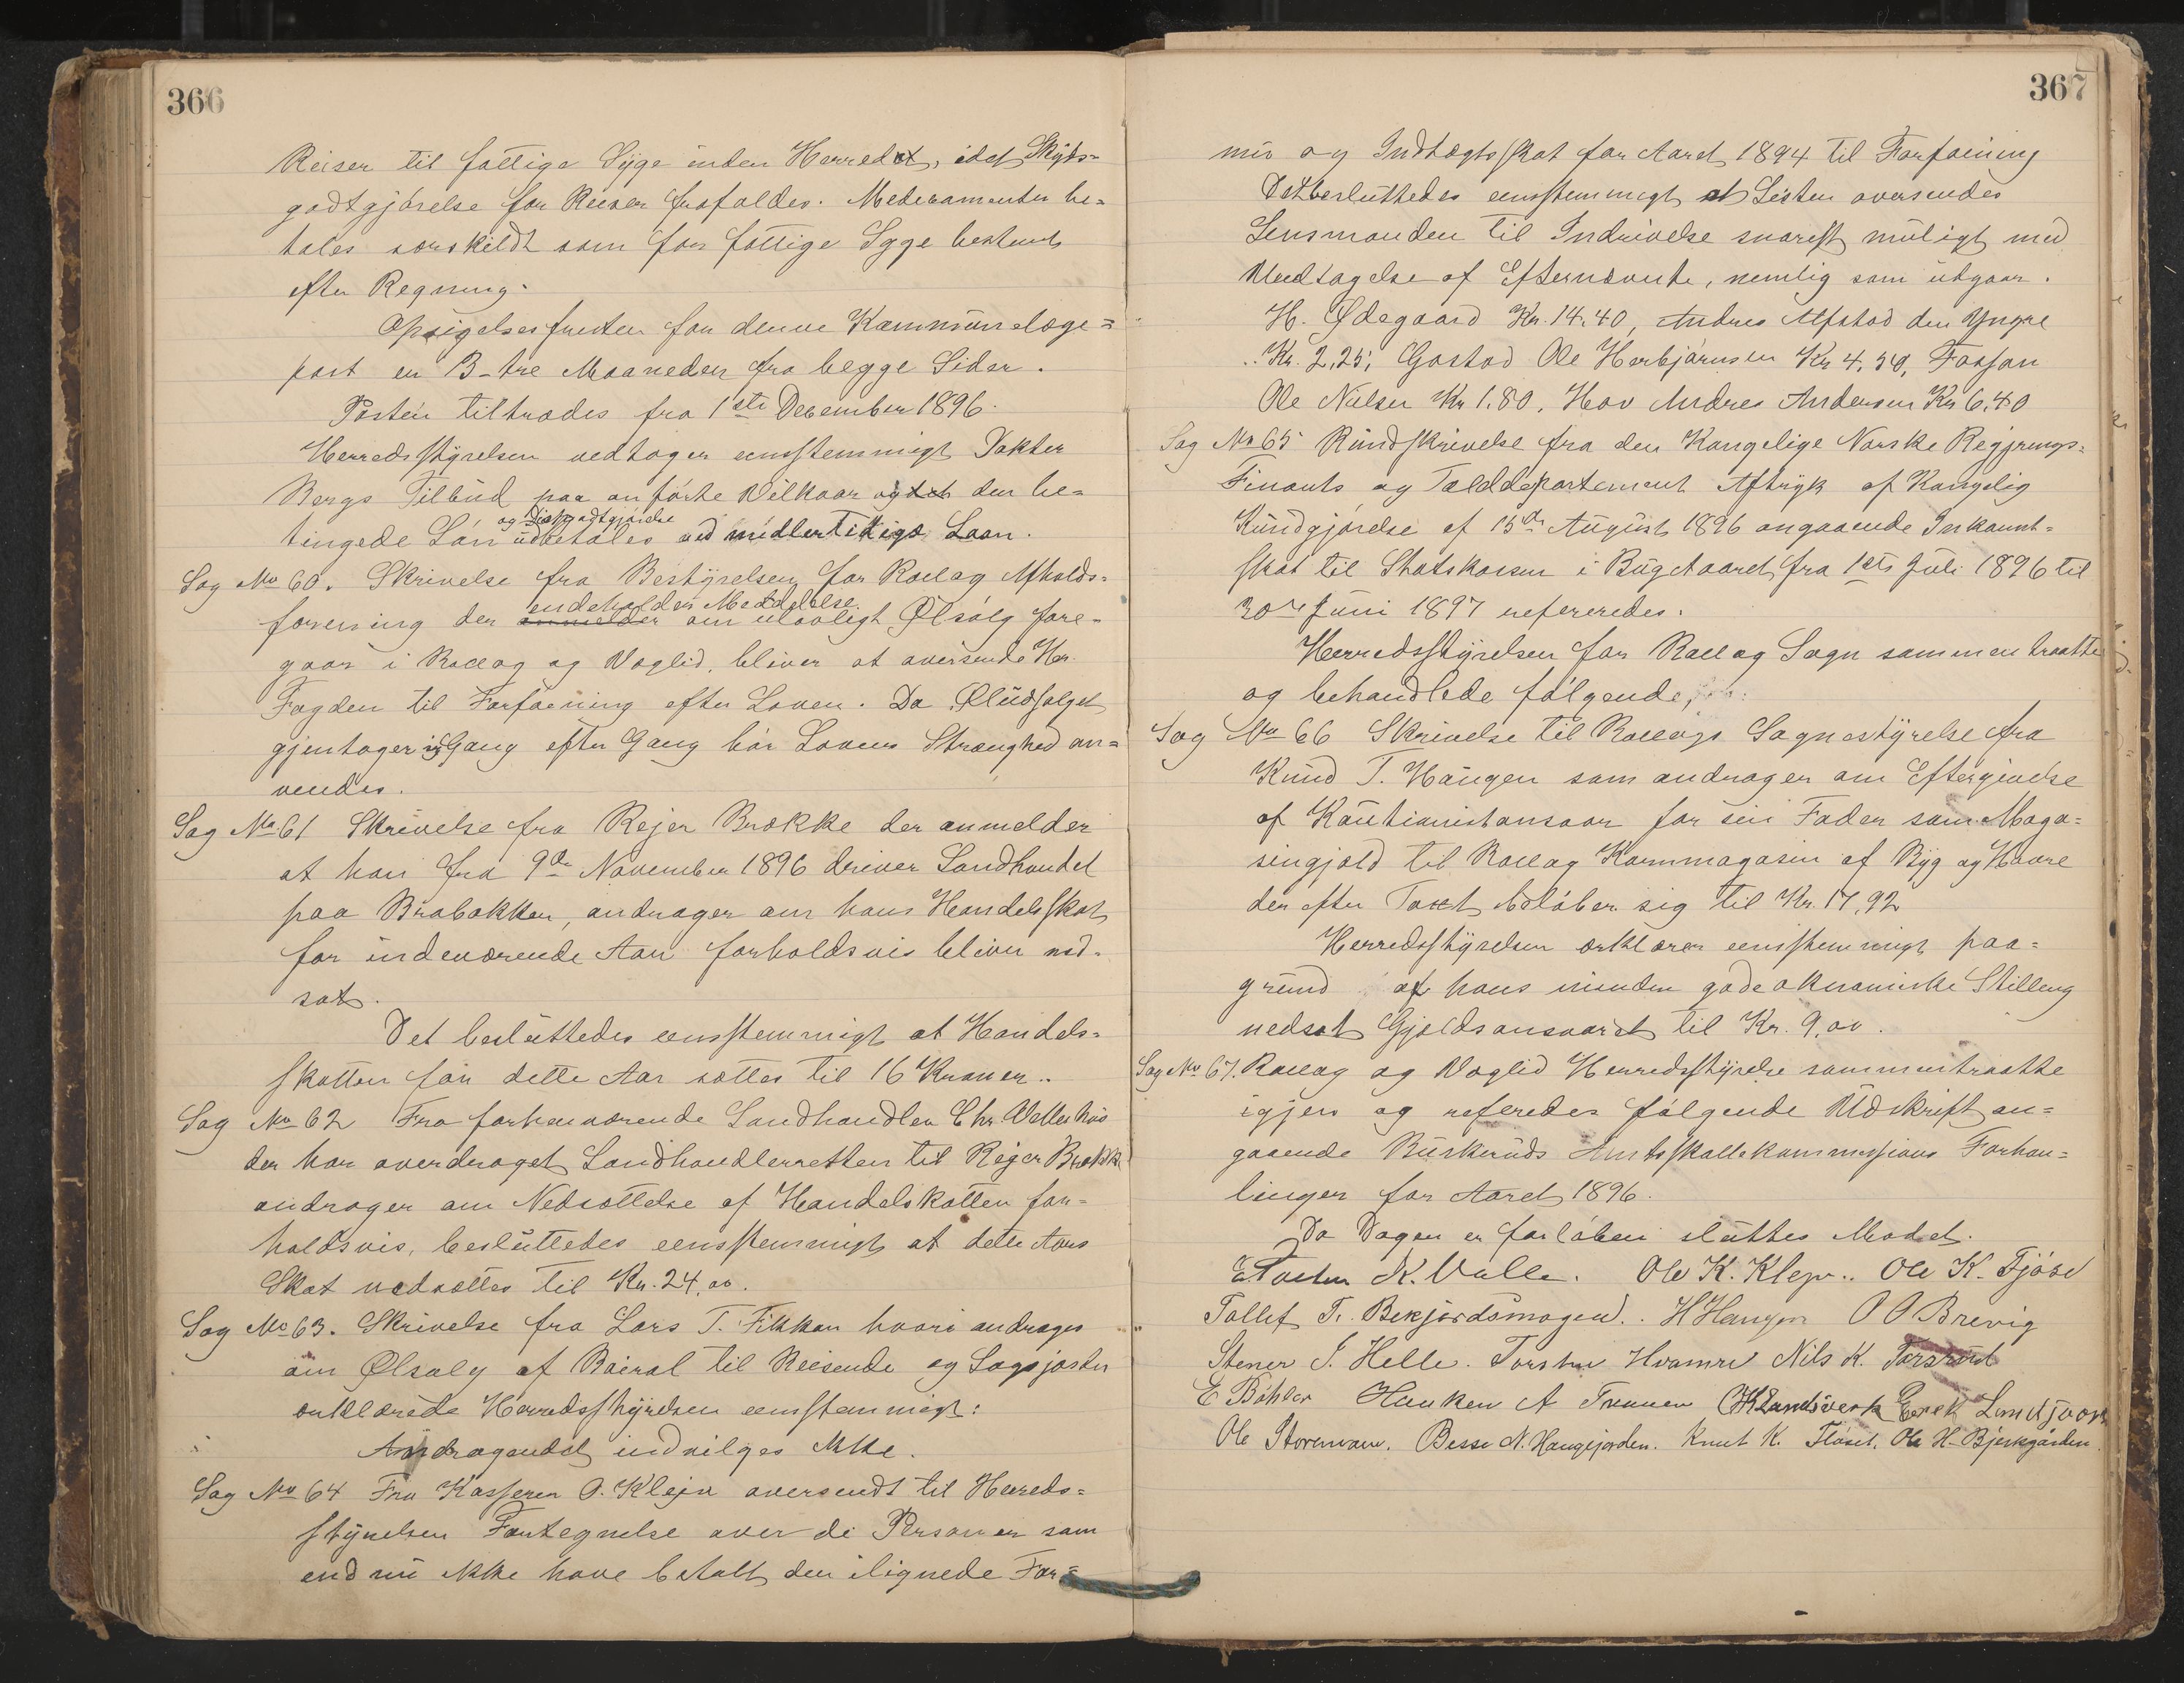 366
Reiser til fattige Syge inden Herredet, idet Skyds-
godtgjörelse for Reiser frafalder. Medicamenter be-
tales særskildt som for fattige Syge bestemt
efter Regning.
Opsigelsesfristen for denne Kommunelæge-
post er 3-tre Maaneder fra begge Sider.
Posten tiltrædes fra 1ste December 1896.
Herredsstyrelsen vedtager eensstemmigt Dokter
Bergs Tilbud paa anförte Vilkaar og den be-
og Diætgodtgjörelse
tingede Lön udbetales ved midlertidige Laan.
Sag No 60. Skrivelse fra Bestyrelsen for Rollag Afholds-
endeholder Meddelelse
forening der anmelder om ulovligt Ølsalg fore-
gaar i Rollag og Væglid, bliver at oversende Hr.
Fogden til Forföining efter Loven. Da Øludsalget
gjentager sig Gang efter Gang bör Lovens Strænghed an-
vendes.
Sag No 61 Skrivelse fra Rejer Brække der anmelder
at han fra 9de November 1896 driver Landhandel
paa Brobakken, andrager om hans Handelsskat
for indeværende Aar forholdsvis bliver ned-
sat.
Det besluttedes eensstemmigt at Handels-
skatten for dette Aar sættes til 16 Kroner.
Sag No 62 Fra forhenværende Landhandler Chr. Velleshus
der har overdraget Landhandlerretten til Rejer Brække
andrager om Nedsættelse af Handelskatten for-
holdsvis, besluttedes eensstemmigt at dette Aars
Skat nedsættes til Kr. 24,00.
Sag No 63. Skrivelse fra Lars T. Fikkan hvori andrages
om Ølsalg af Baierøl til Reisende og Logsjæster
erklærede Herredsstyrelsen eensstemmigt:
Andragendet indvilges ikke.
Sag No 64 Fra Kasserer O. Klejv oversendt til Herreds-
styrelsen Fortegnelse over de Personer som
end nu ikke have betalt den ilignede For-
367
mue og Indtægtsskat for Aaret 1894 til Forföining
Det besluttedes eensstemmigt at Listen oversendes
Lensmanden til Inddrivelse snarest muligt med
Undtagelse af Efternævnte, nemlig som udgaar.
H. Ødegaard Kr. 14,40, Andres Alfstad den Yngre
Kr. 2,25, Gostad Ole Herbjörnsen Kr 4,50, Fosjan
Ole Nielsen Kr 1.80, Hov Andres Andersen Kr 6,40
Sag No 65 Rundskrivelse fra den Kongelige Norske Regjrings-
Finants og Tolddepartement Aftryk af Kongelig
Kundgjörelse af 15de August 1896 angaaende Inkomst-
skat til Statskassen i Bugetaaret fra 1ste Juli 1896 til
30te Juni 1897 refereredes.
Herredsstyrelsen for Rollag Sogn sammentraatte
og behandlede fölgende,
Sag No 66 Skrivelse til Rollags Sognestyrelse fra
Knud T. Haugen som andrager om Eftergivelse
af Kautionistansvar for sin Fader som Maga-
singjæld til Rollag Kornmagasin af Byg og Havre
der efter Taxt belöber sig til Kr. 17,92
Herredsstyrelsen erklærer eensstemmigt paa-
grund af hans mindre gode økonomiske Stilling
nedsat Gjældsansvaret til Kr. 9,00.
Sag No 67. Rollag og Væglid Herredsstyrelse sammentraatte
igjen og referedes fölgende Udskrift an-
gaaende Buskeruds Amtsskattekommissions Forhan-
linger for Aaret 1896.
Da Dagen er forlöben sluttes Mödet.
K. Valle. Ole K. Klepr. Ole K. Fjöse
Tollef T. Bekjordsmogen. H Haugen O O Brevig
Stener J. Helle. Torsten Hvamre Nils K. Tarsrud
E Böhler Haaken A Traaen OH Landsverk Eerek Lindsjoorn
Ole Storemoen. Besse N. Haugejorden. Knut K. Flöset. Ole H. Bjerkgården.